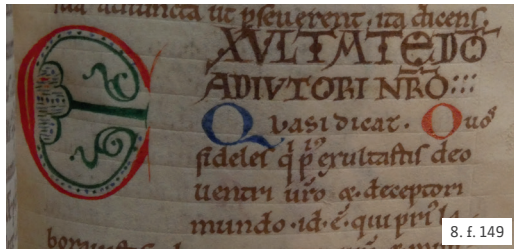 ut pseuerent. ita dicens.
EXVLTATE DŌ
ADIVTORI NR̄O:::
Quasi dicat. O uos
fideles q p exultastis deo
uentri ur̄o & deceptori
mundo ·id· ē· qui pri
8. f. 149